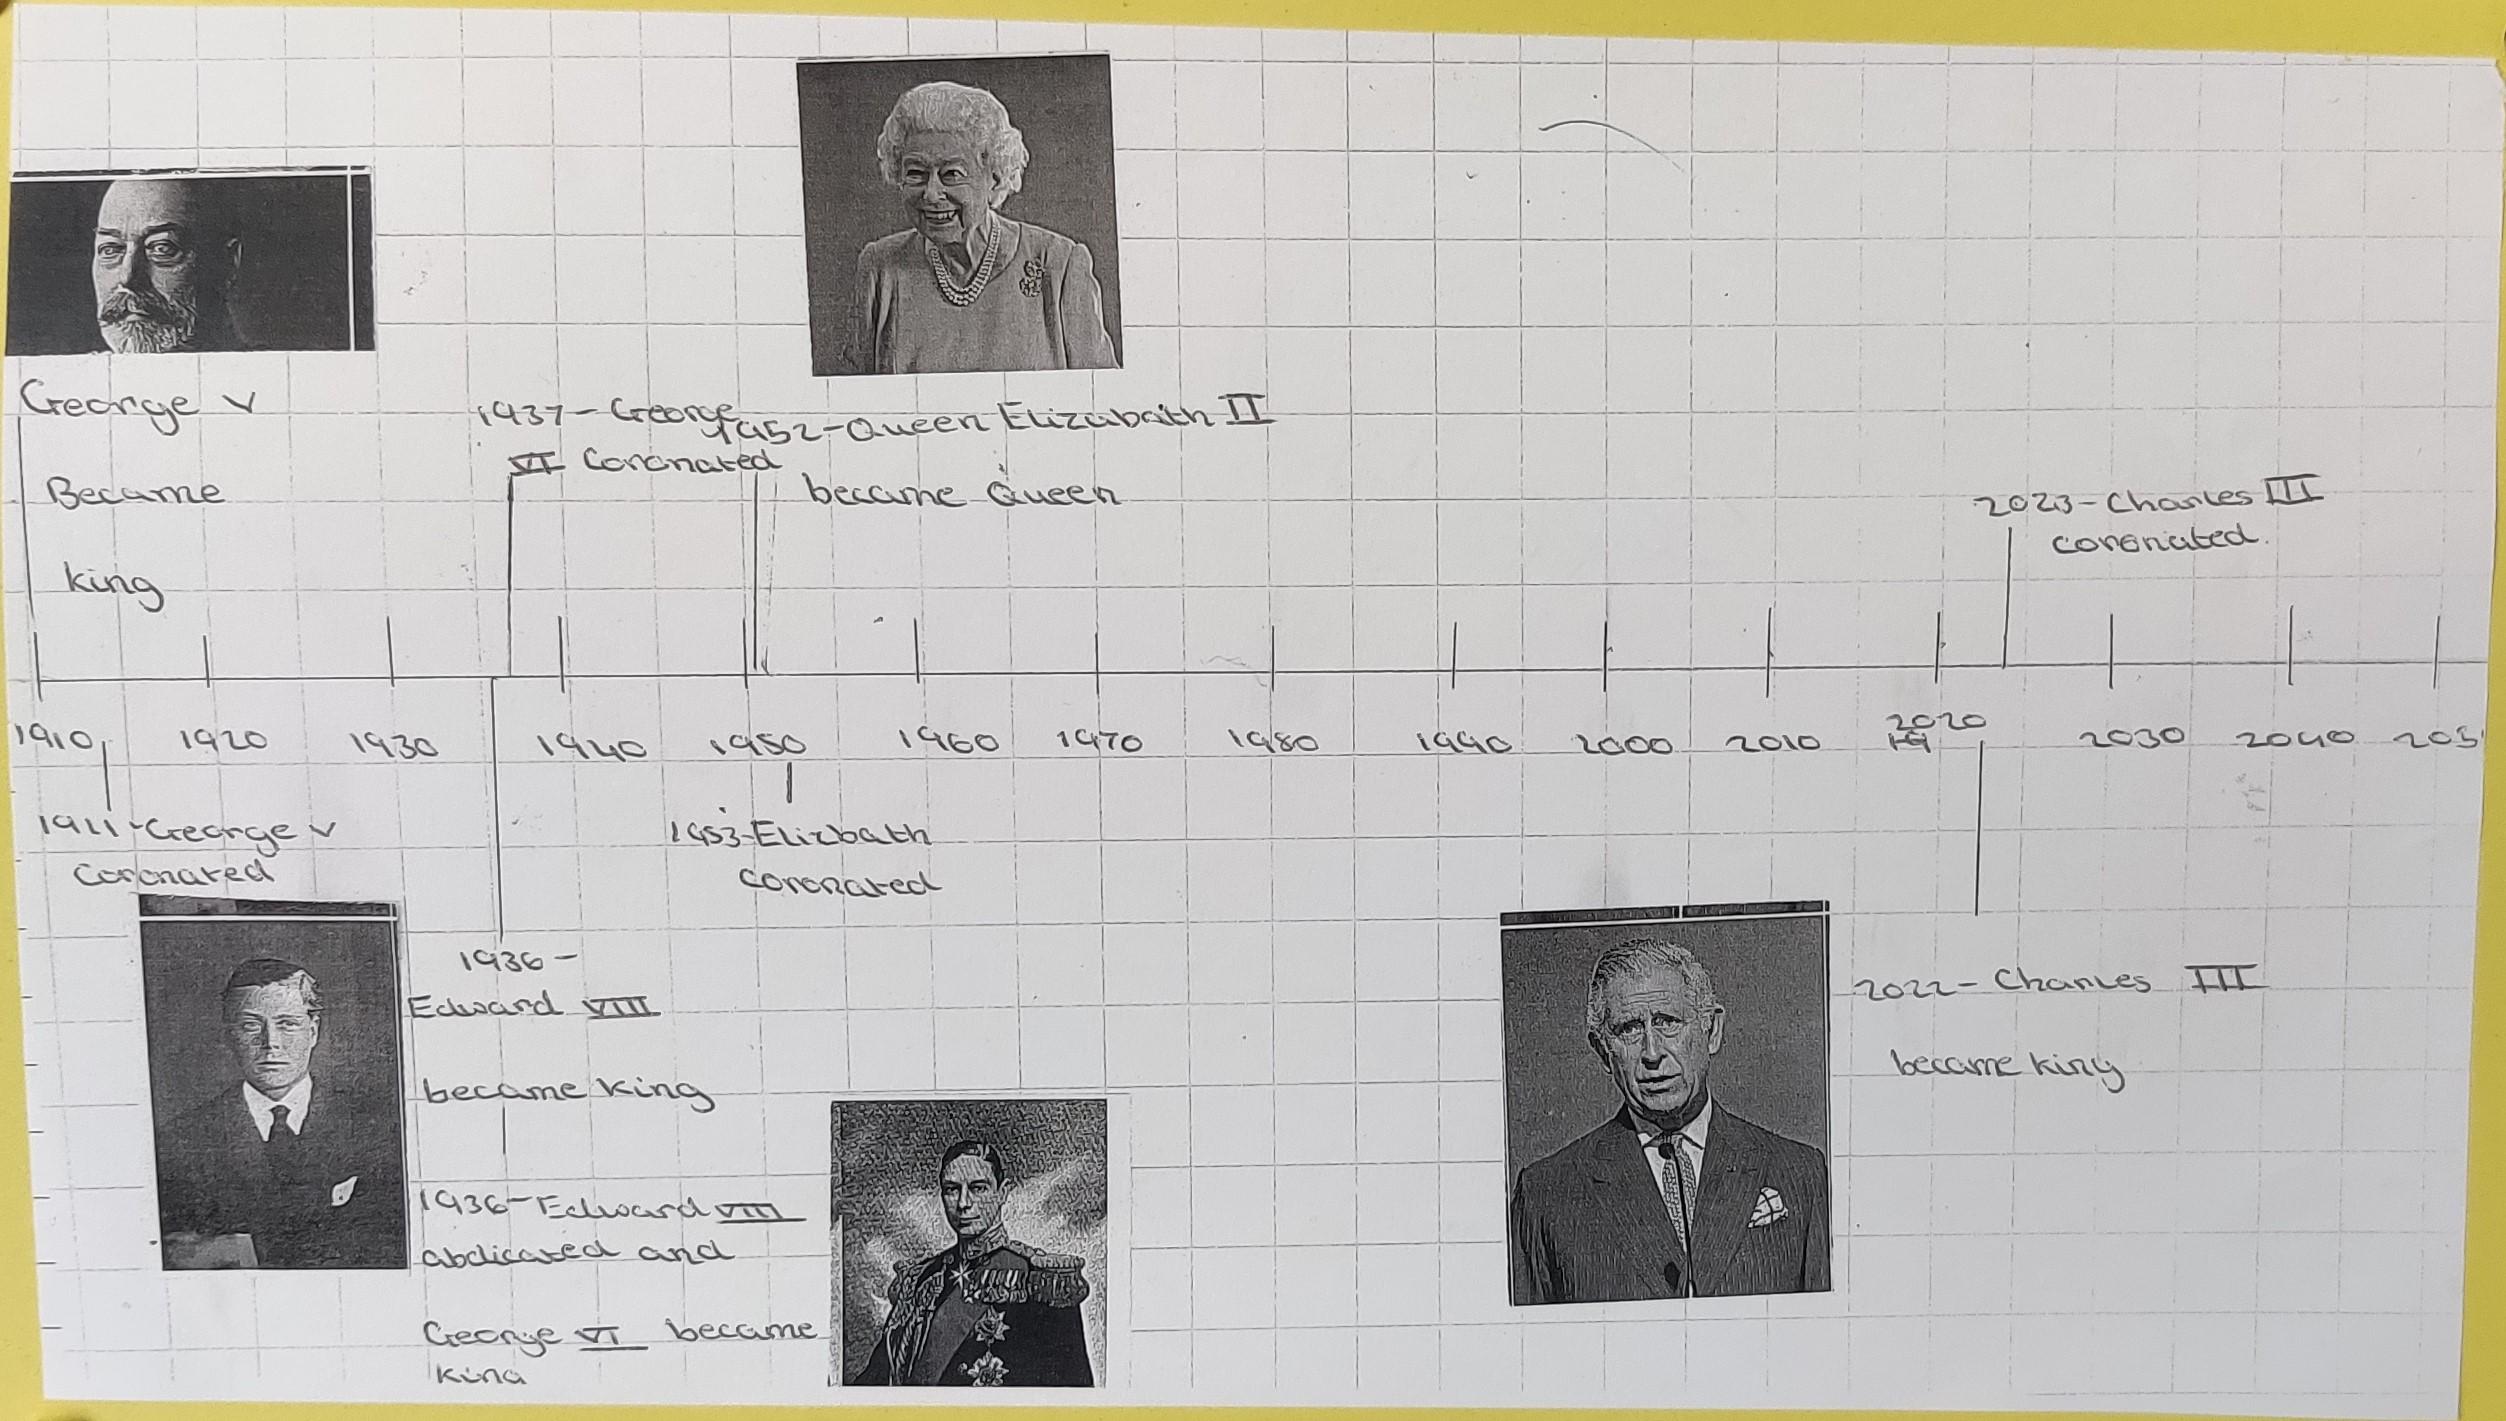 George V
Became
king
1937- George
VI Coronated
1952-Queen Elizabaith II
became Queen
2023-Charles III
coronated.
1910 1920 1930 1940 1950 1960 1970 1980 1990 2000 2010 2020 2030 2040 205
19
1911-George V
Coronated
1953-Elizbath
coronated
1936-
Edward VIII
became king
1936-Edward VIII
abdicated and
George VI became
king
2022- Charles III
became king